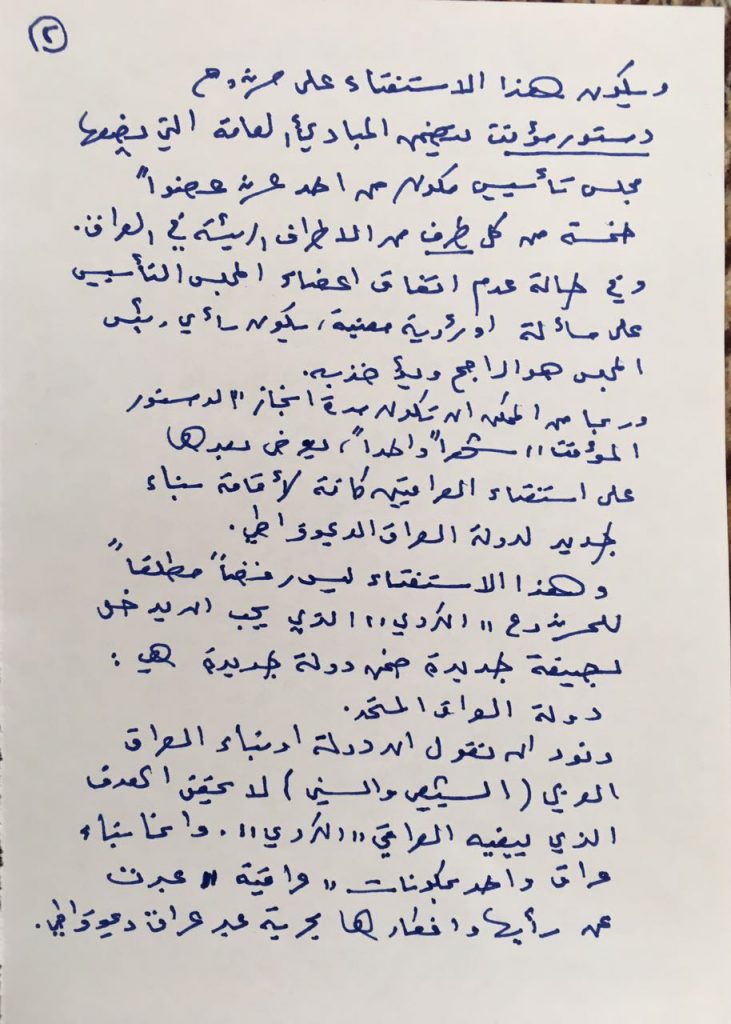 ٢
وسيكون هذا الاستفتاء على مشروع
دستور مؤقت يتضمن المبادئ العامة التي يضعها
مجلس تأسيسي مكون من احد عشر عضواً
خمسة من كل طرف من الاطراف الرئيسة في العراق.
وفي حالة عدم اتفاق اعضاء المجلس التأسيسي
على مسألة او رؤية معينة، سيكون رأي رئيس
المجلس هو الراجح ويؤخذ به.
وربما من الممكن ان تكون مدة انجاز "الدستور
المؤقت" شهراً واحداً، يعرض بعدها
على استفتاء العراقيين كافة لأقامة بناء
جديد لدولة العراق الديموقراطي.
وهذا الاستفتاء ليس رفضاً مطلقاً
للمشروع "الكردي" الذي يجب ان يدخل
بصيغة جديدة ضمن دولة جديدة هي:
دولة العراق المتحد.
ونود ان نقول ان دولة او بناء العراق
العربي (الشيعي والسني) لا يحقق الهدف
الذي يبغيه العراقي "الكردي". وانما بناء
عراق واحد بمكونات "عراقية" عبرت
عن رأيها وافكارها بحرية عبر عراق ديموقراطي.